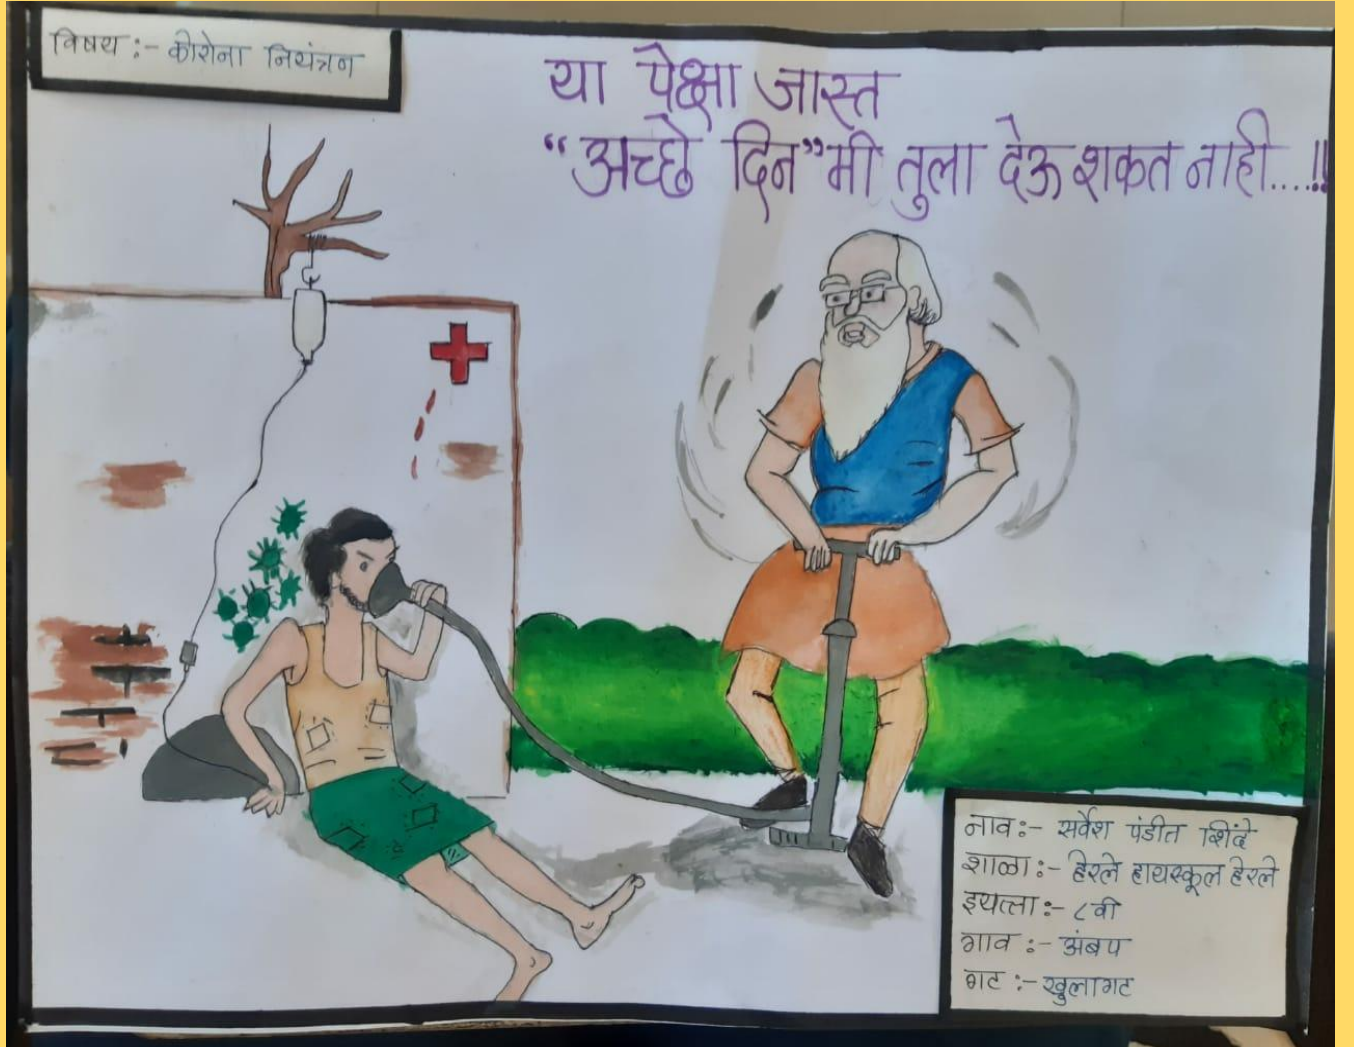 विषय :- कोरोना नियंत्रण
या पेक्षा जास्त
“अच्छे दिन” मी तुला देऊ शकत नाही....!!
नाव :- सर्वेश पंडीत शिंदे
शाळा :- हेरले हायस्कूल हेरले
इयत्ता :- ८वी
गाव :- अंबप
गट :- खुलागट